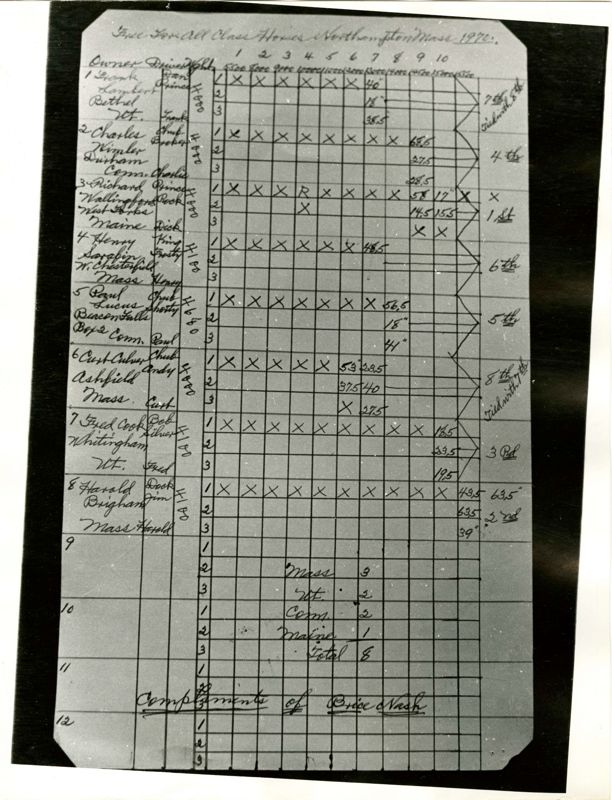 Free For All Class Horses Northampton Mass 1972.
1 2 3 4 5 6 7 8 9 10
Owner Driver
1 Frank Dan X X X X X X 40" 7th
Lambert Prince 2 18" Tied with 8th
Bethel 3 38.5
Vt. Frank
2 Charles Chub 1 X X X X X X X X 68.5
Kimler Broker 2 27.5 4th
Durham 3 28.5
Conn. Charlie
3 Richard Prince 1 X X X R X X X X 58 17" X X
Wallingford Rock 2 X 14.5 15.5 1st
West Forks 3 X X
Maine Dick
4 Henry King 1 X X X X X X 48.5
Sarafin Frosty 2 6th
W. Chesterfield 3
Mass Henry
5 Paul Chub 1 X X X X X X X 56.5
Lucus Shorty 2 18" 5th
Beacon Falls 3 41"
Box 2 Conn. Paul
6 Curt Culver Chub 1 X X X X X 53" 23.5 8th
Ashfield Andy 2 37.5 40 Tied with 7th
Mass. Curt 3 X 27.5
7 Fred Cook Bob 1 X X X X X X X X X 18.5
Whitingham Silver 2 23.5 3rd
Vt. Fred 3 19.5
8 Harold Dock 1 X X X X X X X X X X 43.5 63.5"
Brigham Jim 2 63.5 2nd
Mass Harold 3 39"
9 1
2 Mass 3
3 Vt. 2
10 1 Conn. 2
2 Maine 1
3 Total 8
11 1
2
3 Compliments of Brice Nash
12 1
2
3